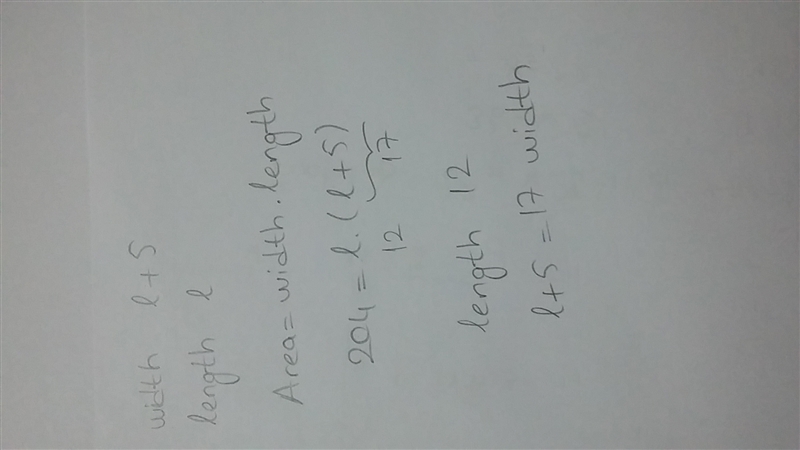 width l+5
length l
Area = width . length
204 = l . (l+5)
12 17
length 12
l+5 = 17 width